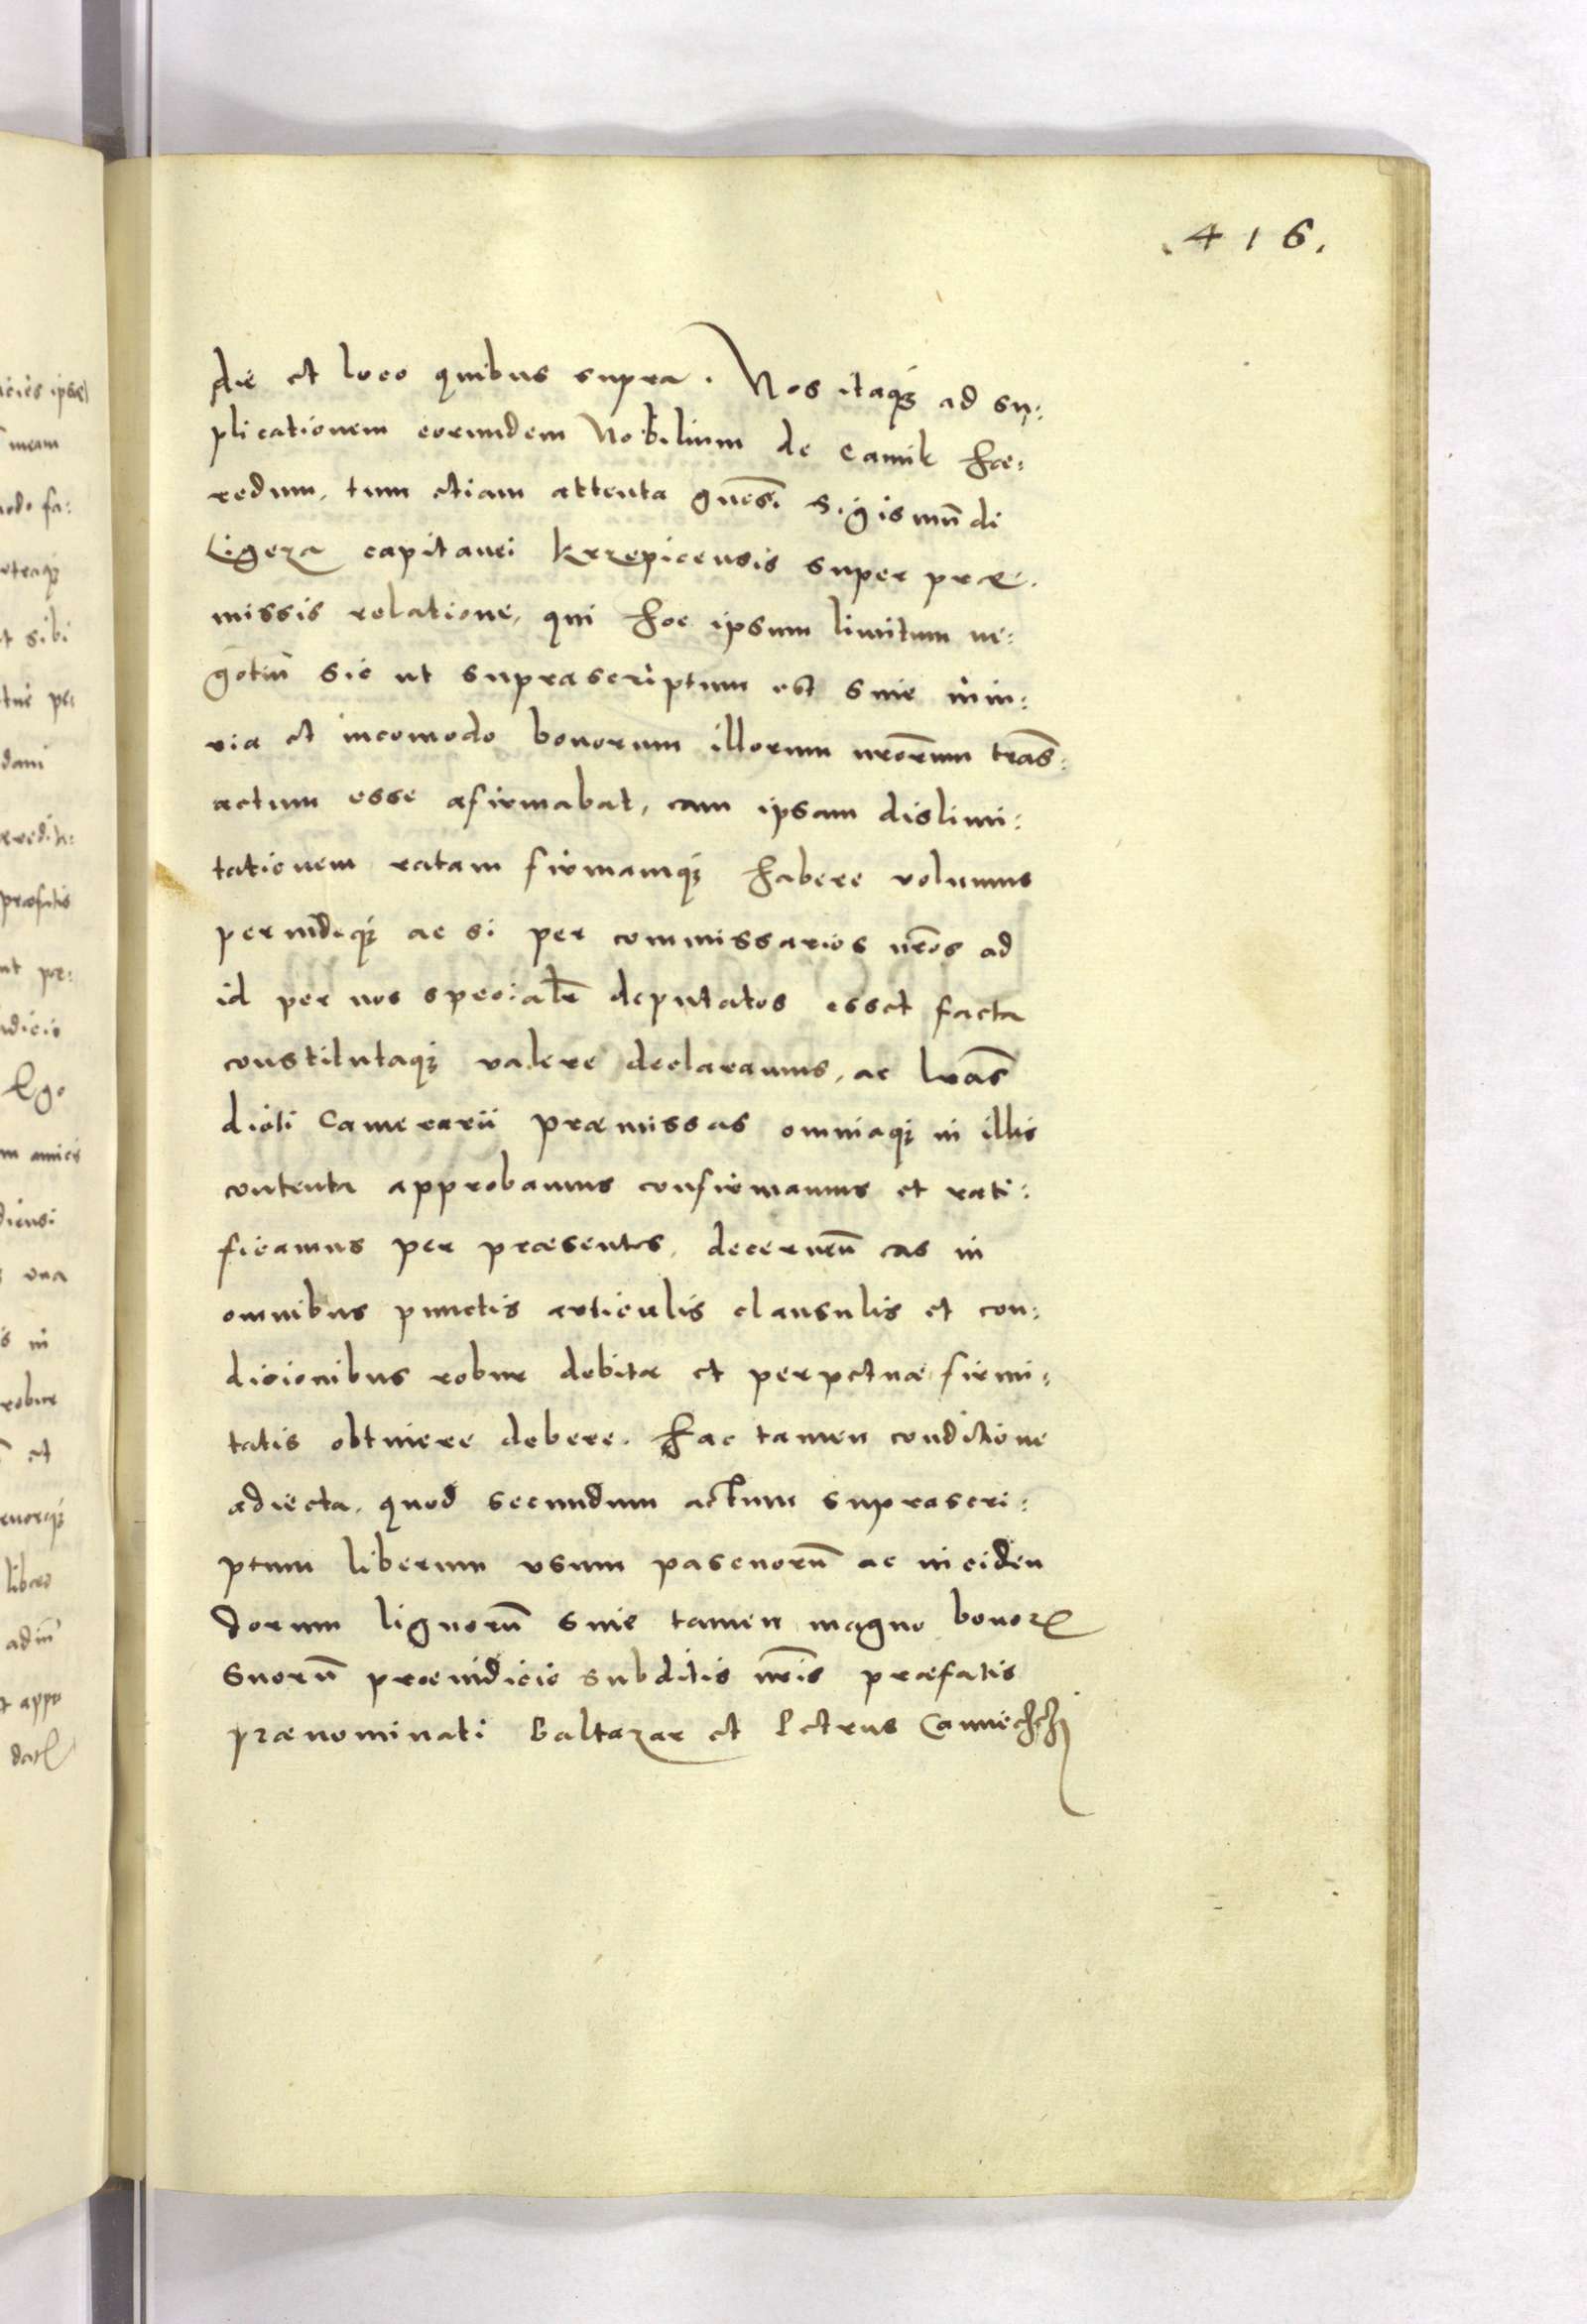 .416.
die et loco quibus supra. Nos itaqꝫ ad su⸗
plicationem eorundem Nobilium de Camik hæ⸗
redum, tum etiam attenta gnēsi Sigismūdi
Ligeza capitanei Krzepicensis super præ⸗
missis relatione, qui hoc ipsum limitum ne⸗
gotiū sic ut suprascriptum est sine iniu⸗
ria et incomodo bonorum illorum nr̄orum trās⸗
actum esse afirmabat, eam ipsam dislimi⸗
tationem ratam firmamqꝫ habere volumus
perindeqꝫ ac si per commissarios nr̄os ad
id per nos specialr̄ deputatos esset facta
constitutaqꝫ valere declaramus, ac lr̄as
dicti Camerarii præmissas omniaqꝫ in illis
contenta approbamus confirmamus et rati⸗
ficamus per præsentes, decernen̄ eas in
omnibus punctis articulis clausulis et con⸗
dicionibus robur debitæ et perpetuæ firmi⸗
tatis obtinere debere. Hac tamen conditione
adiecta, quod secundum actum suprascri⸗
ptum liberum usum pascuorū ac inciden
dorum lignorū sine tamen magno bonoꝝ
suorū præiudicio subditis nr̄is præfatis
prænominati Baltazar et Petrus Camieczschi